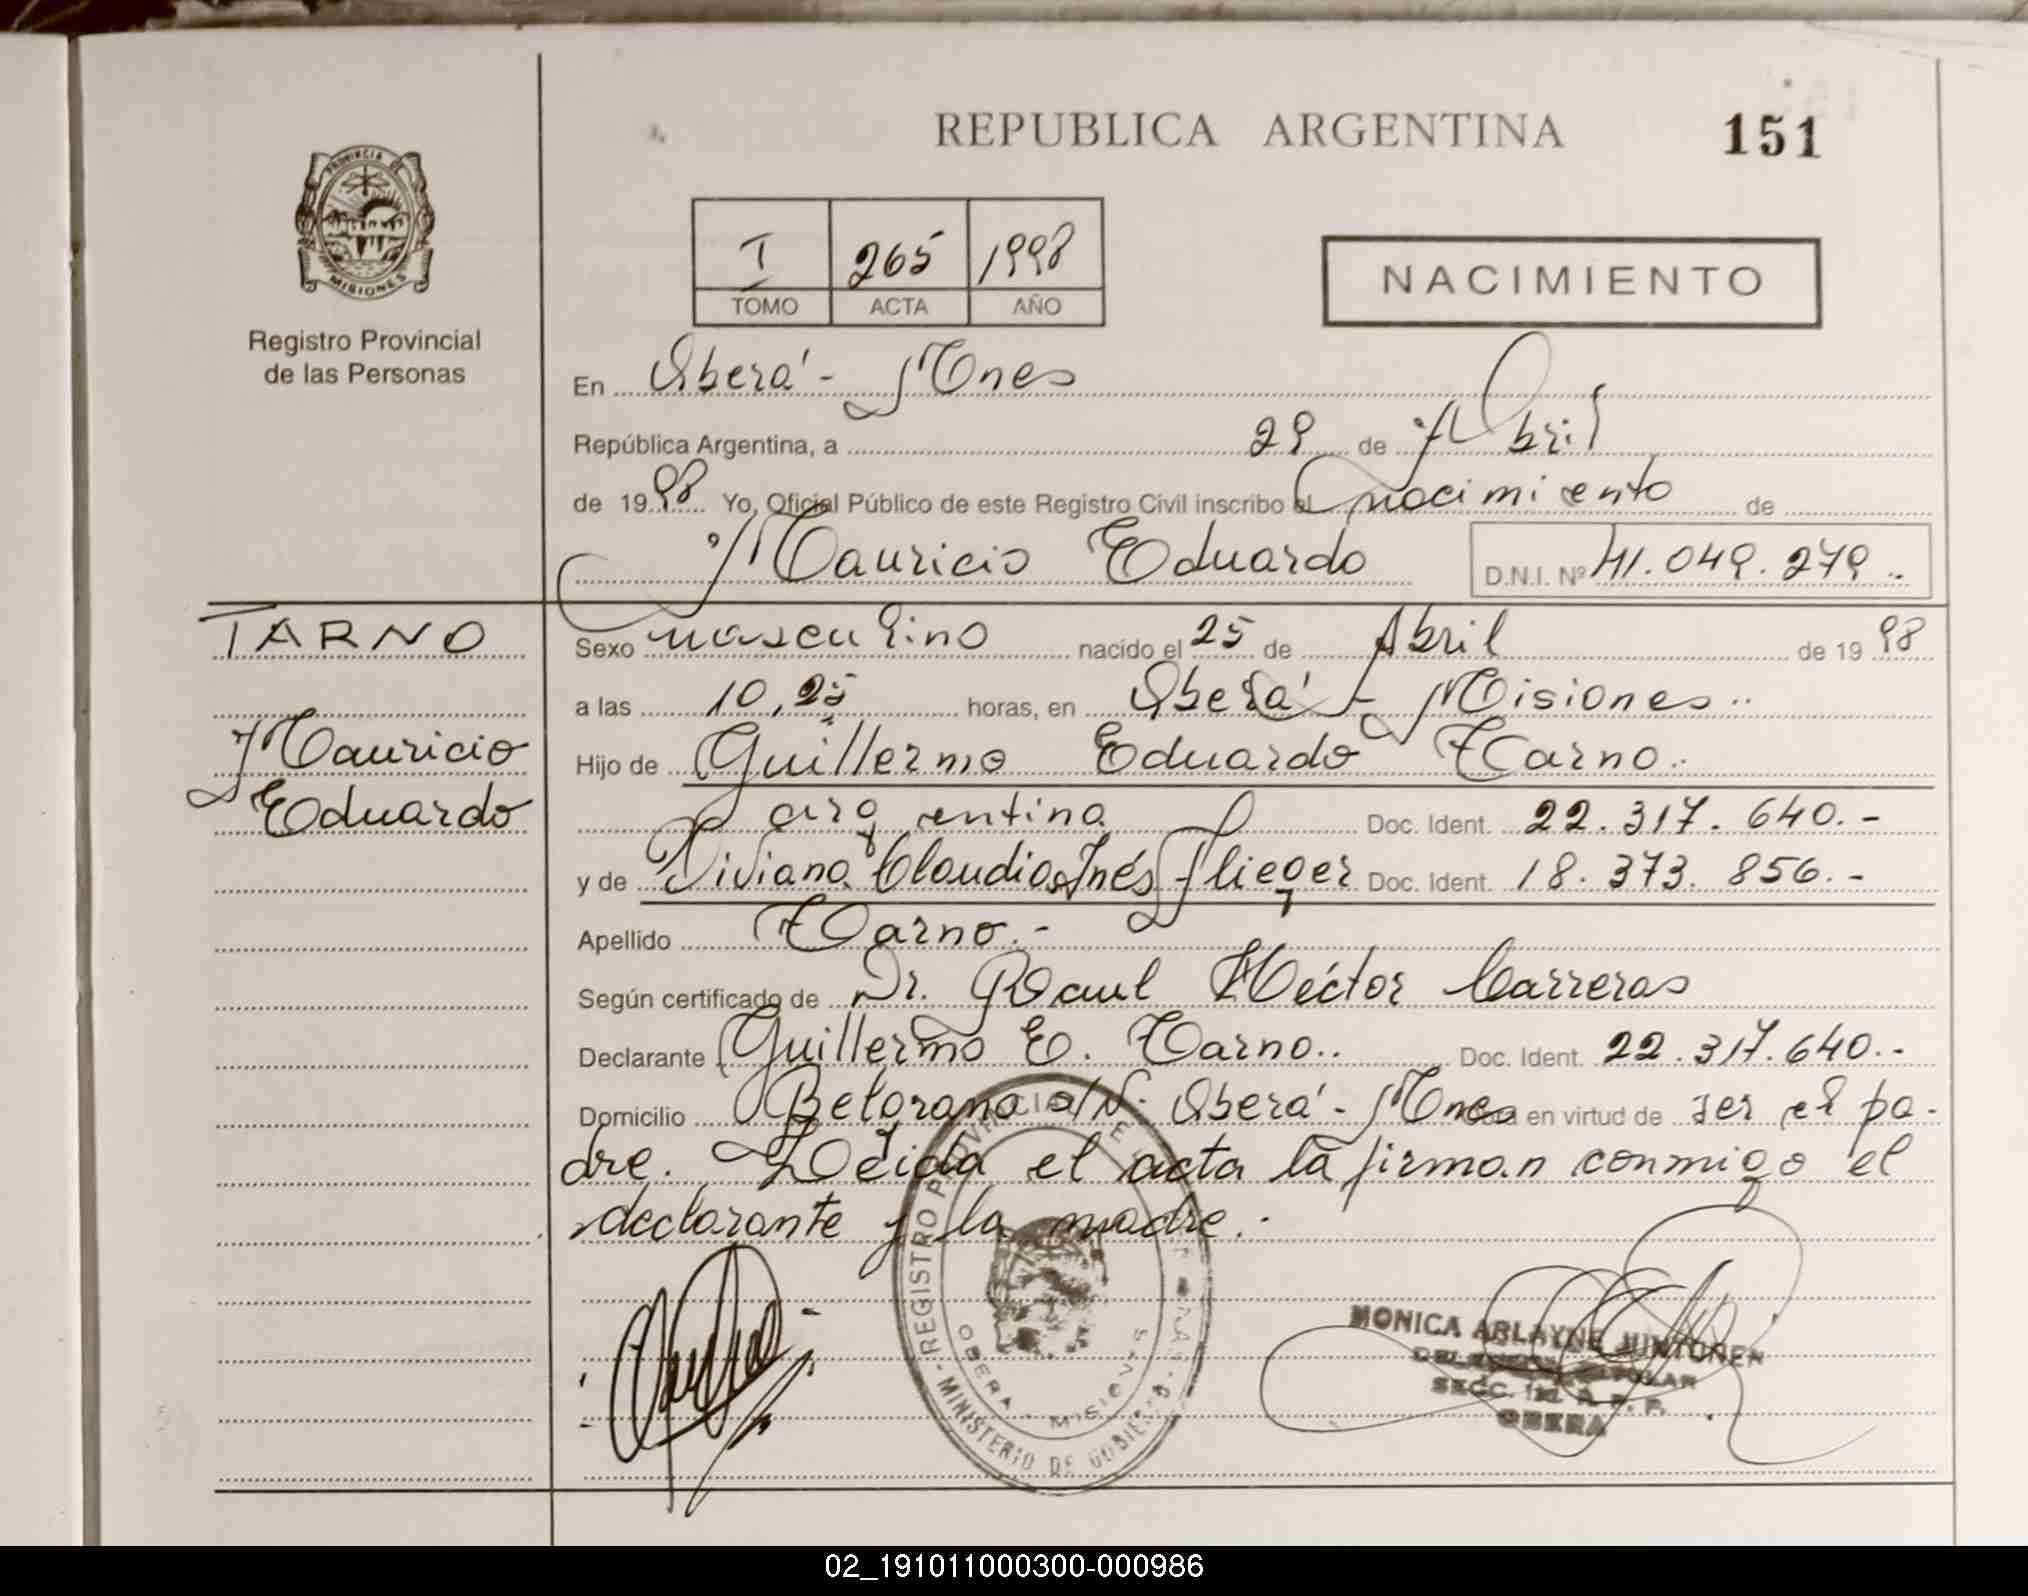 REPUBLICA ARGENTINA
151
PROVINCIA DE
MISIONES
Registro Provincial
de las Personas
I 265 1998
TOMO ACTA AÑO
NACIMIENTO
En Oberá - Mnes
República Argentina, a 29 de Abril
de 1998 Yo, Oficial Público de este Registro Civil inscribo el nacimiento de
Mauricio Eduardo D.N.I. Nº 41.049.279.-
TARNO
Mauricio
Eduardo
Sexo masculino nacido el 25 de Abril de 1998
a las 10,25 horas, en Oberá - Misiones..
Hijo de Guillermo Eduardo Tarno..
argentina Doc. Ident. 22.317.640.-
y de Viviana Claudia Inés Flieger Doc. Ident. 18.373.856.-
Apellido Tarno.-
Según certificado de Dr. Raul Héctor Carreras
Declarante Guillermo E. Tarno.. Doc. Ident. 22.317.640.-
Domicilio Belgrano s/N. Oberá - Mnes en virtud de ser el pa-
dre. Leída el acta la firman conmigo el
declarante y la madre.-
REGISTRO PROVINCIAL DE
MINISTERIO DE GOBIERNO
OBERA - MISIONES
MONICA ARLAYNE
SECC.
OBERA
02_191011000300-000986